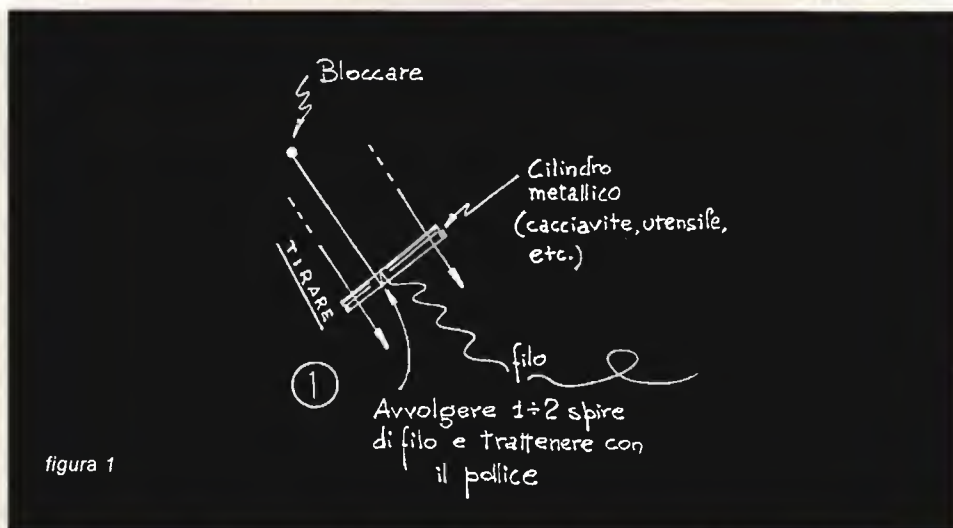 Bloccare
Cilindro
metallico
(cacciavite, utensile,
etc.)
TIRARE
filo
1
Avvolgere 1÷2 spire
di filo e trattenere con
il pollice
figura 1